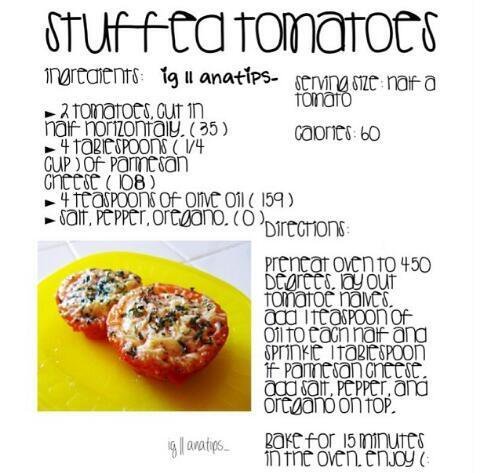 Stuffed tomatoes
ingredients: ig || anatips-
► 2 tomatoes, cut in
half horizontaly. ( 35 )
► 4 tablespoons ( 1/4
cup ) of parmesan
cheese ( 108 )
► 4 teaspoons of olive oil ( 159 )
► salt, pepper, oregano. ( 0 )
serving size : half a
tomato
calories : 60
Directions:
preheat oven to 450
degrees. lay out
tomatoe halves.
add 1 teaspoon of
oil to each half and
sprinkle 1 tablespoon
if parmesan cheese.
add salt, pepper, and
oregano on top.
Bake for 15 minutes
in the oven. enjoy (:
ig || anatips_